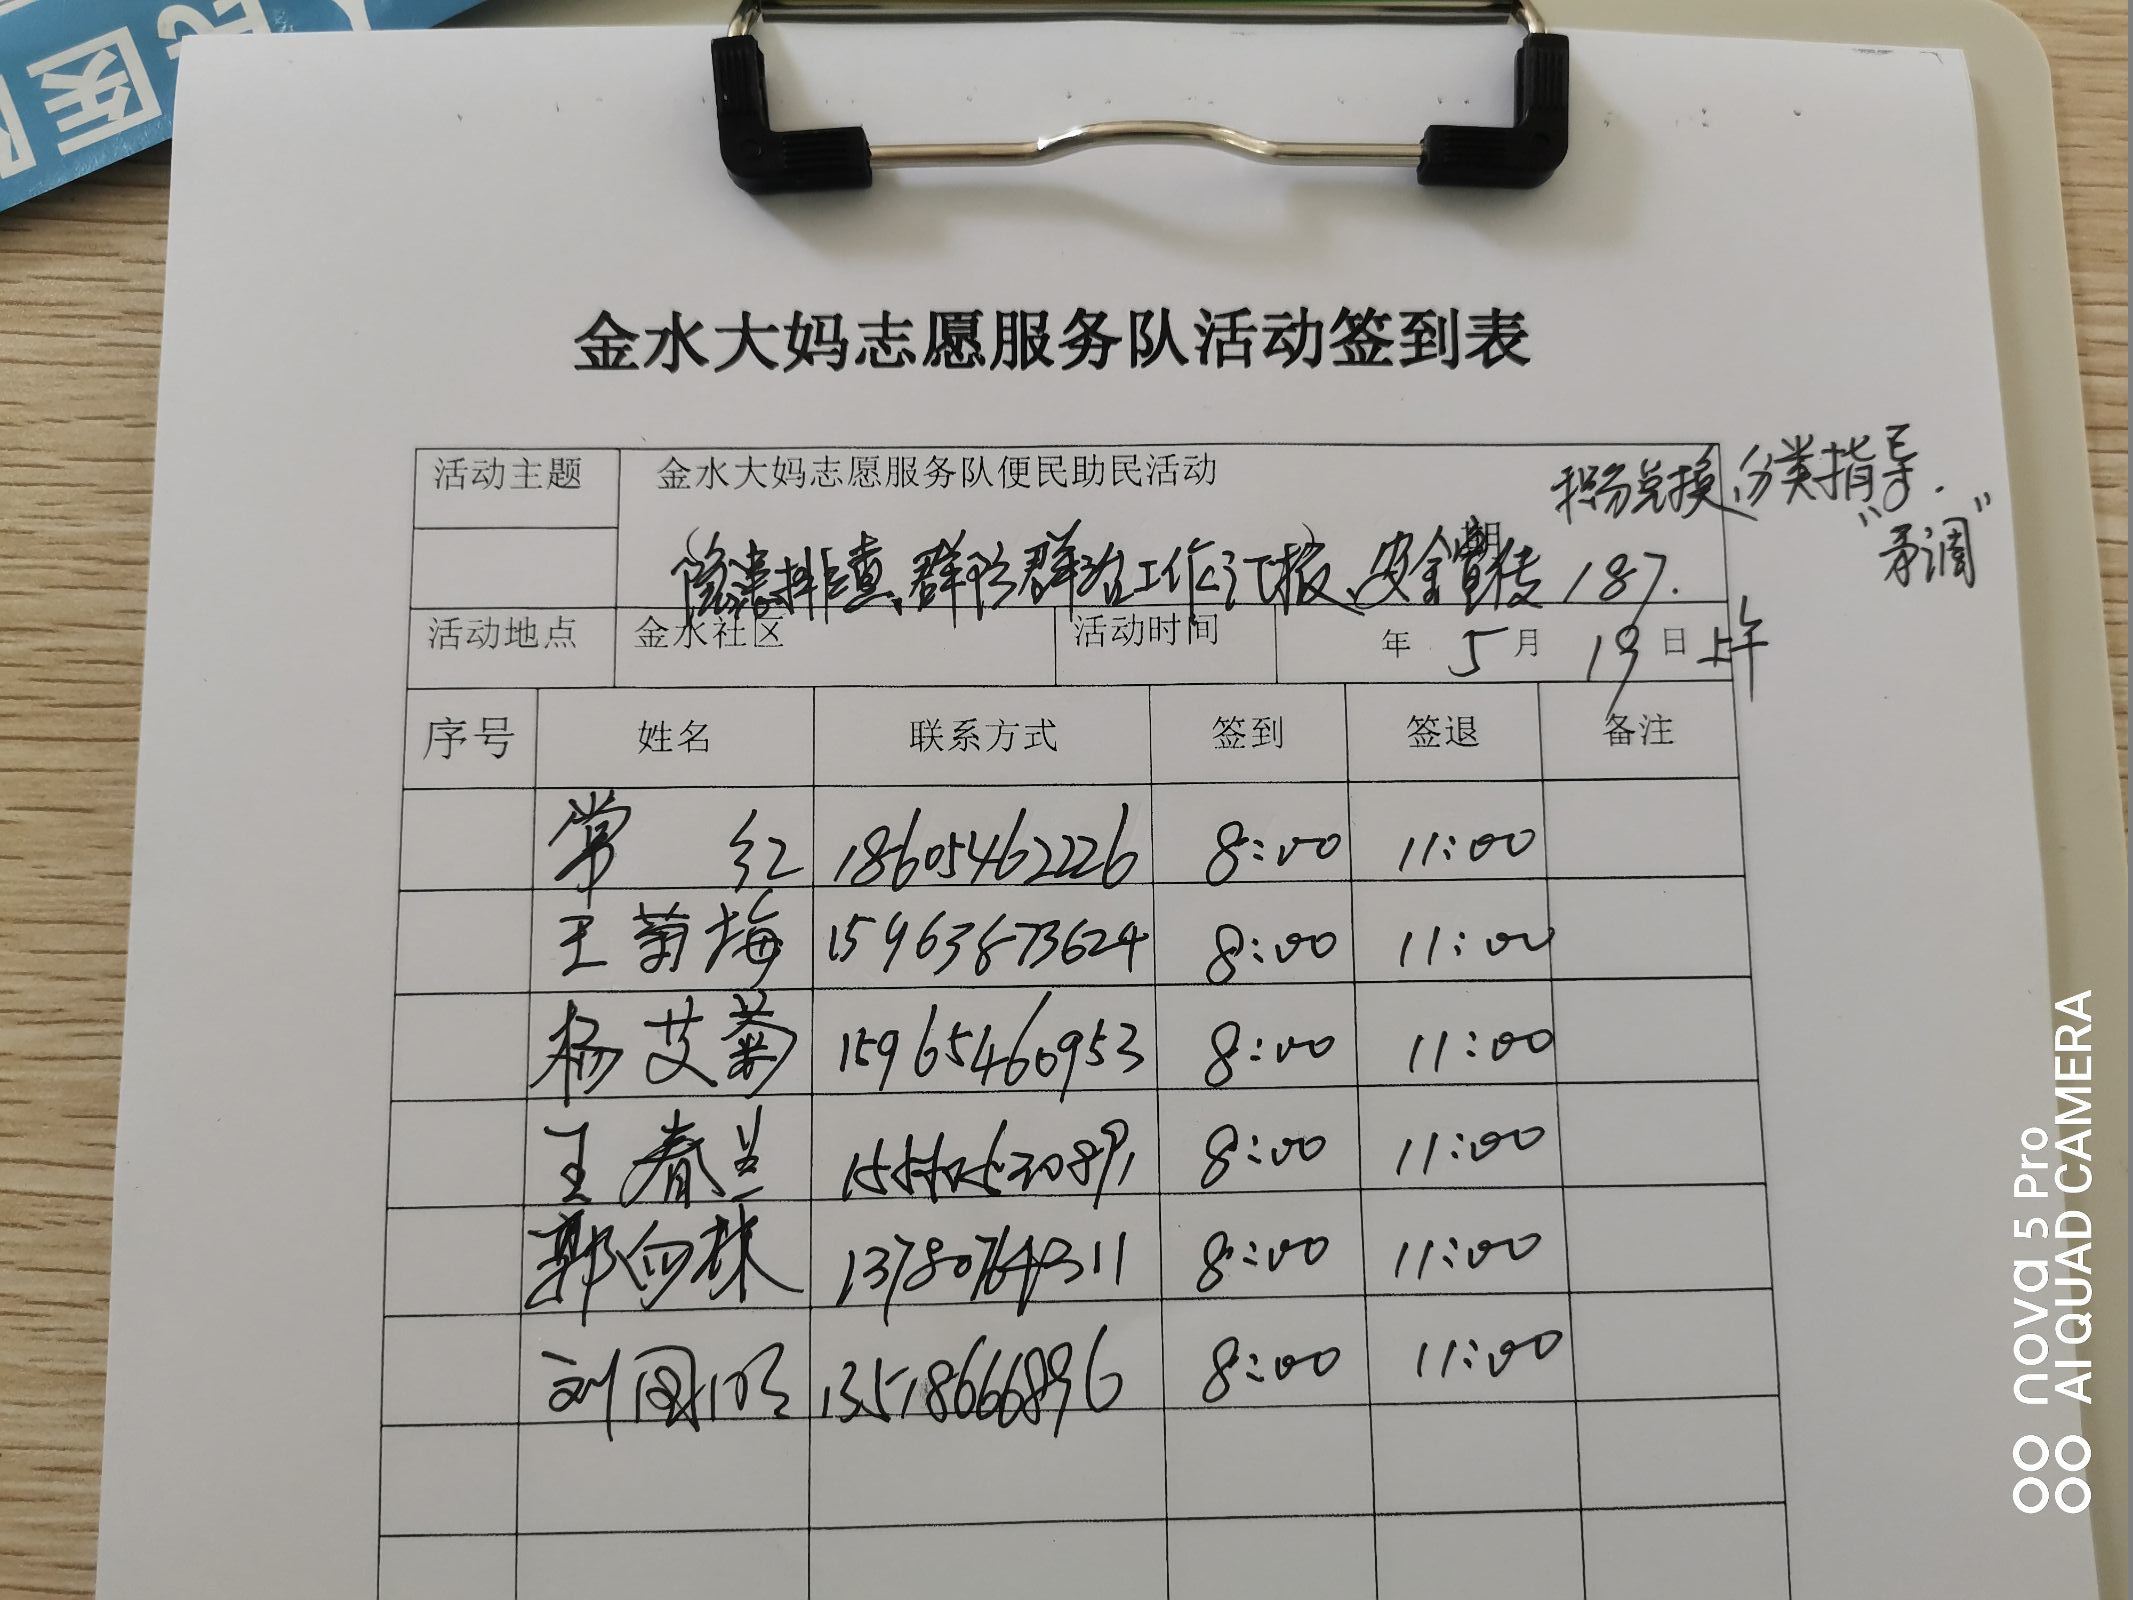 民医
金水大妈志愿服务队活动签到表
活动主题 金水大妈志愿服务队便民助民活动 积分兑换,分类指导.
“矛调”
(隐患排查、群防群治工作汇报)、安全宣传 187.
活动地点 金水社区 活动时间 年 5 月 19 日 上午
序号 姓名 联系方式 签到 签退 备注
常红 18605462226 8:00 11:00
王菊梅 15963873624 8:00 11:00
杨艾菊 15965460953 8:00 11:00
王春兰 8:00 11:00
郭向林 13780764311 8:00 11:00
刘国明 13518666896 8:00 11:00
nova 5 Pro
AI QUAD CAMERA